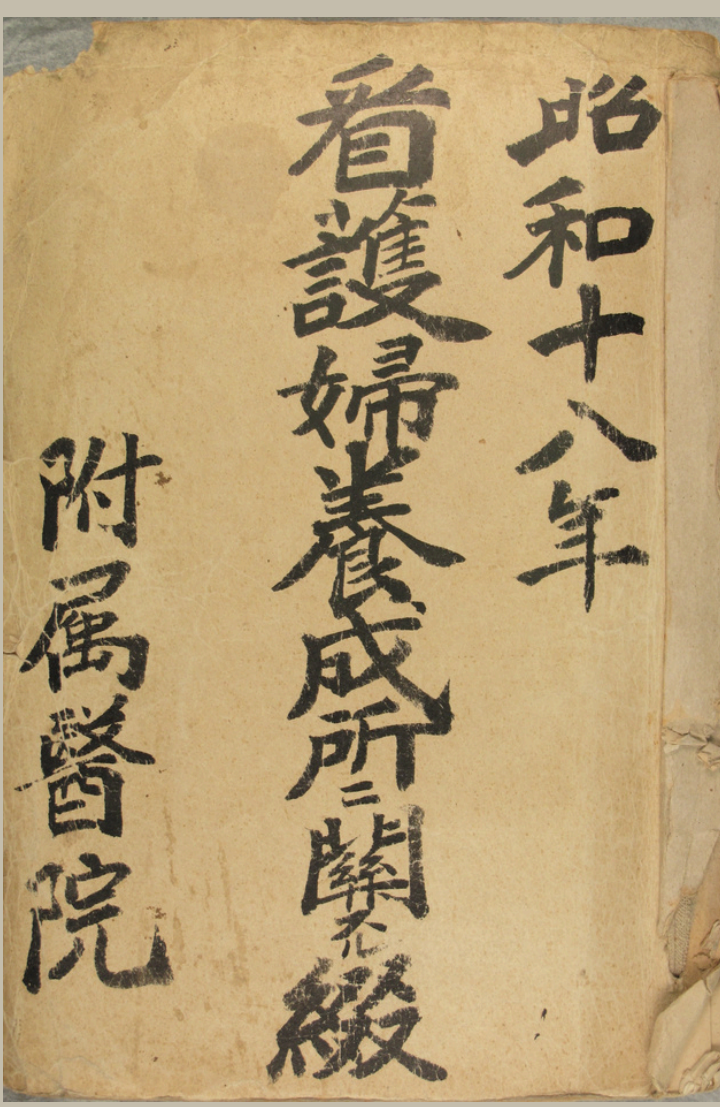 昭和十八年
看護婦養成所ニ関スル綴
附属醫院